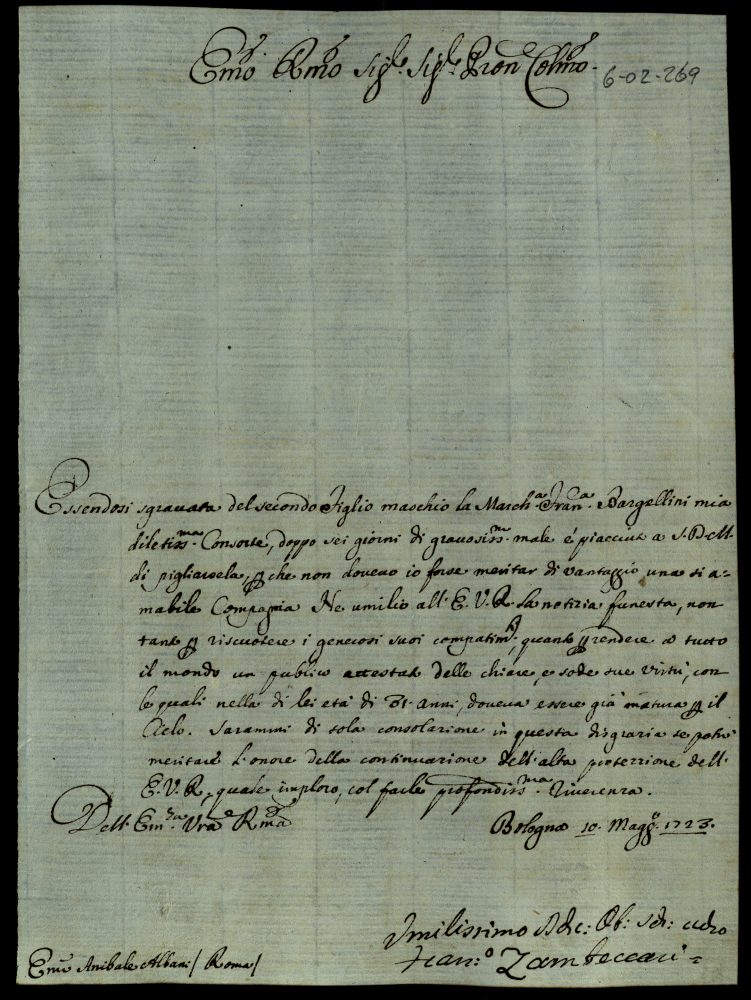 Em̃o Rm̃o Sig.re Sig.re Pron̄e Colm̃o
6-02-269
Essendosi sgravata del secondo Figlio maschio la March.a Fran.ca Bargellini mia
diletiss.ma Consorte, doppo sei giorni di gravosiss.mo male é piacciut a S. D. M.
di pigliarsela, p che non dovevo io forse meritar di vantaggio una si a=
mabile Compagnia Ne umilio all' E. V. R. la notizia funesta, non
tanto p riscuotere i generosi suoi compatim.ti, quanto p rendere a tutto
il mondo un publico attestato delle chiare, e sode sue virtù, con
le quali nella di lei età di 31. anni, doveva essere già matura p il
Cielo. Sarammi di sola consolazione in questa disgrazia se potrò
meritare l'onore della continuazione dell'alta protezzione dell'
E. V. R., quale imploro, col farle profondiss.ma riverenza.
Dell' Em.za Vr̄a Rm̄a
Bologna 10. Magg.o 1723.
Umilissimo Ob:
Fran:o Zambeccari
Em̃o Anibale Albani / Roma /